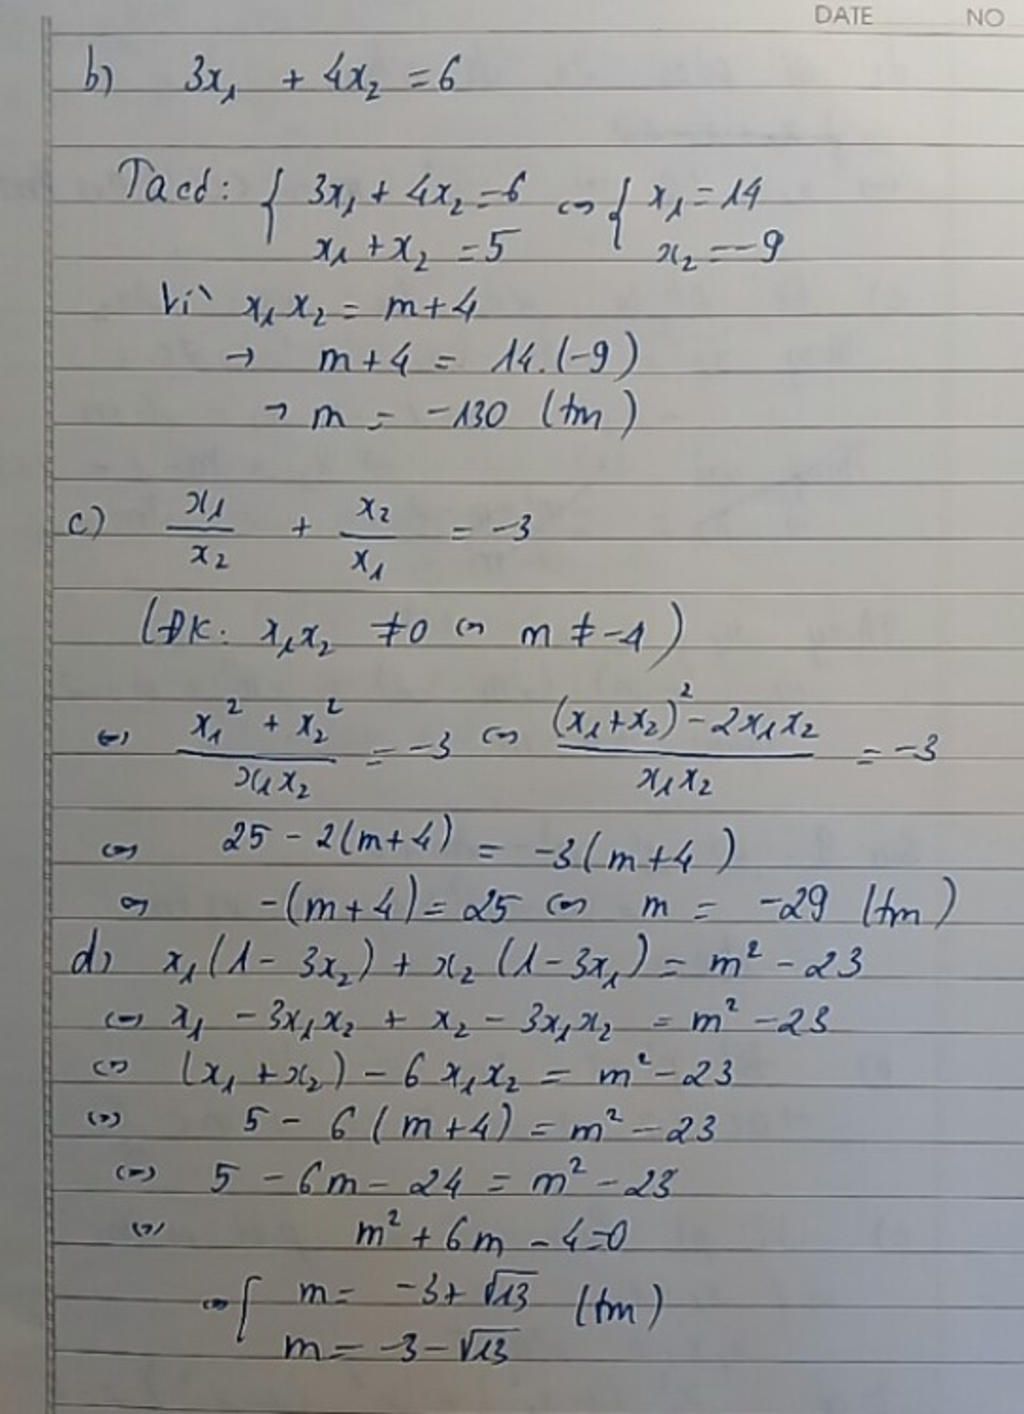 DATE NO
b) 3x₁ + 4x₂ = 6
Ta có: { 3x₁ + 4x₂ = 6 ⇔ { x₁ = 14
x₁ + x₂ = 5 x₂ = -9
Vì x₁x₂ = m+4
→ m+4 = 14.(-9)
→ m = -130 (tm)
c) x₁/x₂ + x₂/x₁ = -3
(ĐK: x₁x₂ ≠ 0 ⇔ m ≠ -4)
⇔ (x₁² + x₂²)/(x₁x₂) = -3 ⇔ ((x₁+x₂)² - 2x₁x₂)/(x₁x₂) = -3
⇔ 25 - 2(m+4) = -3(m+4)
⇔ -(m+4) = 25 ⇔ m = -29 (tm)
d) x₁(1 - 3x₂) + x₂(1 - 3x₁) = m² - 23
⇔ x₁ - 3x₁x₂ + x₂ - 3x₁x₂ = m² - 23
⇔ (x₁ + x₂) - 6x₁x₂ = m² - 23
⇔ 5 - 6(m+4) = m² - 23
⇔ 5 - 6m - 24 = m² - 23
⇔ m² + 6m - 4 = 0
⇔ [ m = -3 + √13 (tm)
m = -3 - √13